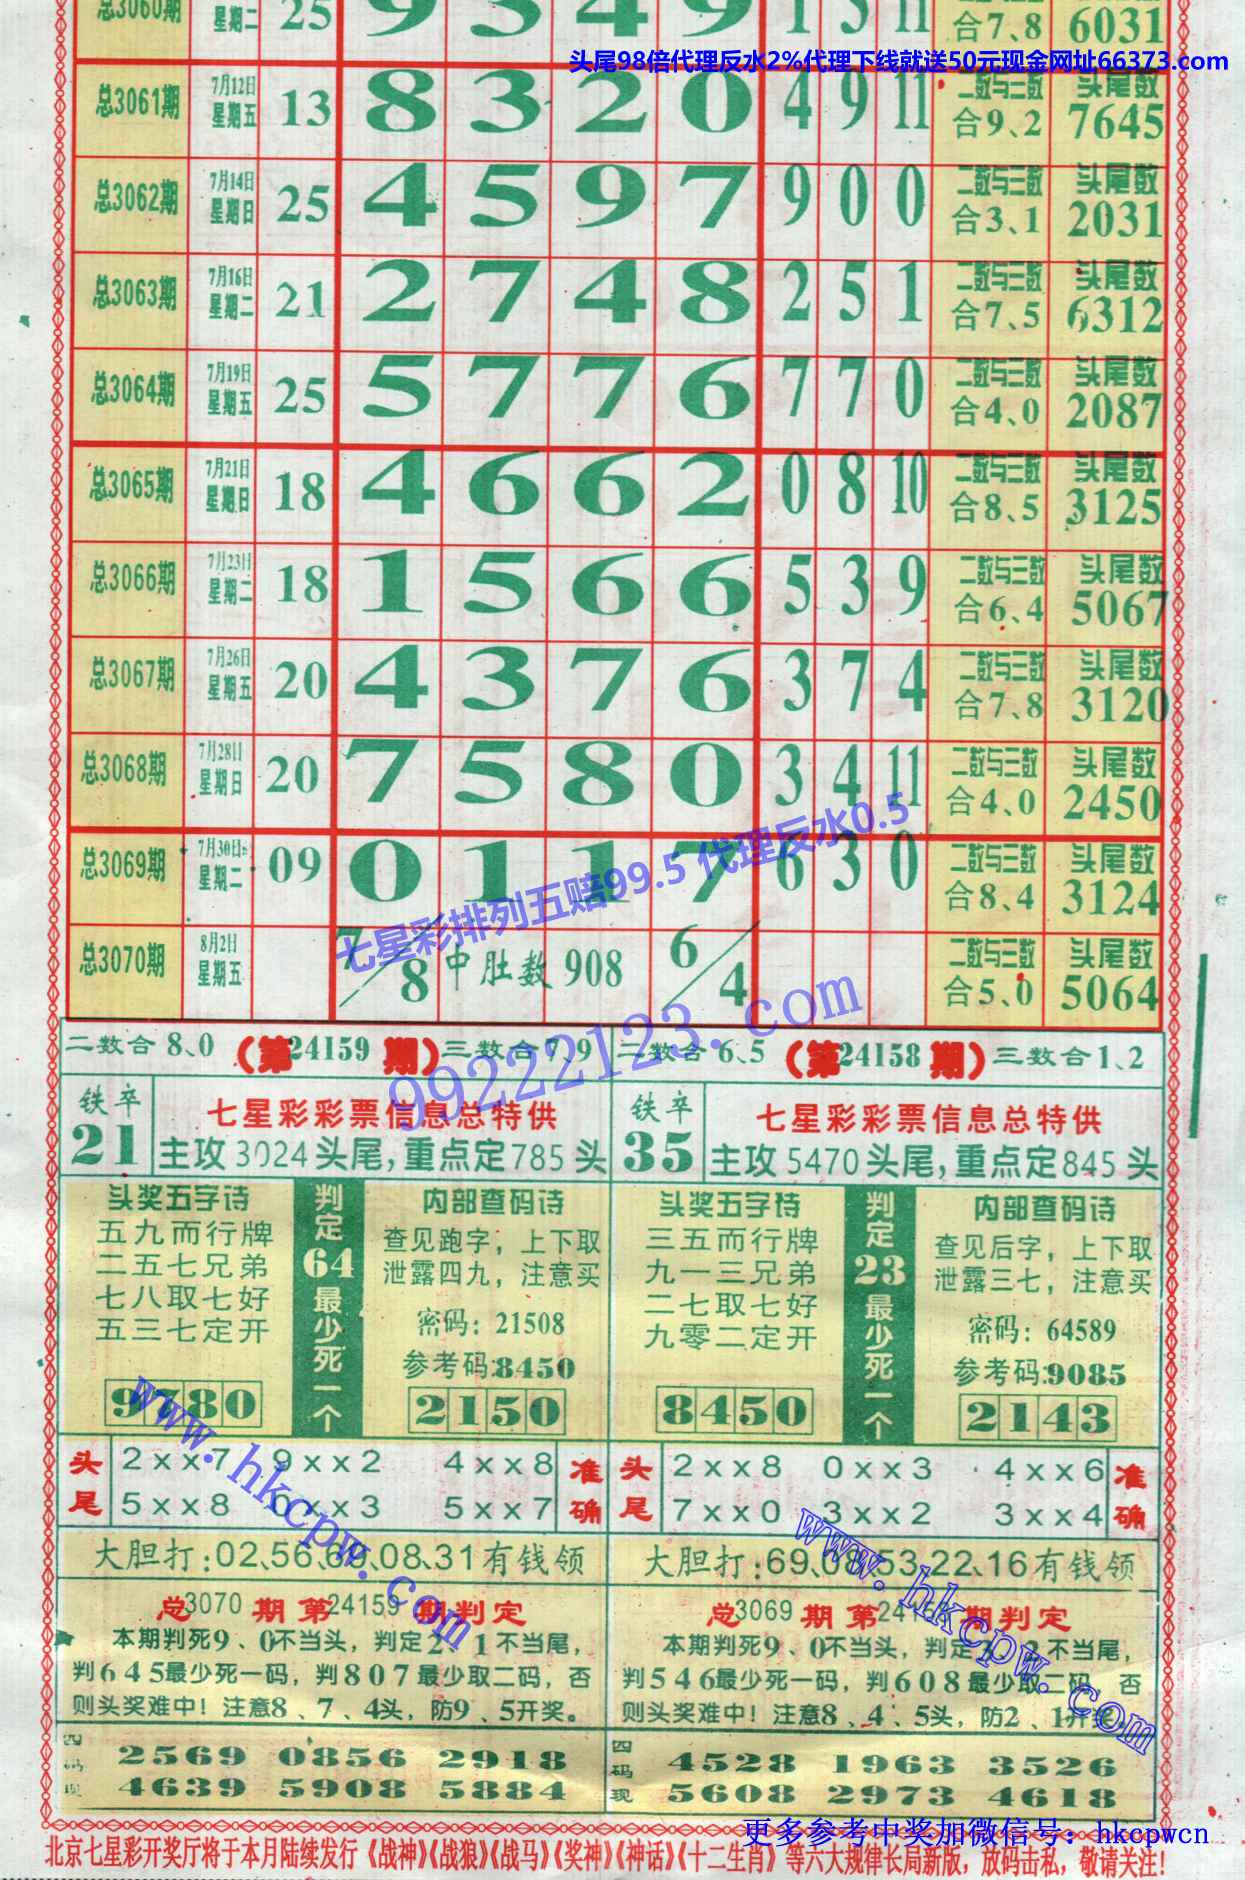 总3060期 星期二 25 9 3 4 9 1 5 11 合7、8 6031
头尾98倍代理反水2%代理下线就送50元现金网址66373.com
总3061期 7月12日 星期五 13 8 3 2 0 4 9 11 二数与三数 合9、2 头尾数 7645
总3062期 7月14日 星期日 25 4 5 9 7 9 0 0 二数与三数 合3、1 头尾数 2031
总3063期 7月16日 星期二 21 2 7 4 8 2 5 1 二数与三数 合7、5 头尾数 6312
总3064期 7月19日 星期五 25 5 7 7 6 7 7 0 二数与三数 合4、0 头尾数 2087
总3065期 7月21日 星期日 18 4 6 6 2 0 8 10 二数与三数 合8、5 头尾数 3125
总3066期 7月23日 星期二 18 1 5 6 6 5 3 9 二数与三数 合6、4 头尾数 5067
总3067期 7月26日 星期五 20 4 3 7 6 3 7 4 二数与三数 合7、8 头尾数 3120
总3068期 7月28日 星期日 20 7 5 8 0 3 4 11 二数与三数 合4、0 头尾数 2450
总3069期 7月30日 星期二 09 0 1 1 7 6 3 0 二数与三数 合8、4 头尾数 3124
七星彩排列五赔99.5 代理反水0.5
总3070期 8月2日 星期五 7/8 中肚数 908 6/4 二数与三数 合5、0 头尾数 5064
99222123.com
二数合8、0 (第24159期) 三数合7、9
铁卒 21
七星彩彩票信息总特供
主攻3024头尾,重点定785头
头奖五字诗
五九而行牌
二五七兄弟
七八取七好
五三七定开
9780
判定64最少死一个
内部查码诗
查见跑字，上下取
泄露四九，注意买
密码：21508
参考码:8450
2150
头尾 2xx7 9xx2 4xx8 准确
5xx8 0xx3 5xx7
大胆打:02、56、69、08、31有钱领
总3070期第24159期判定
本期判死9、0不当头，判定2、1不当尾，
判645最少死一码，判807最少取二码，否
则头奖难中！注意8、7、4头，防9、5开奖。
四码现 2569 0856 2918
4639 5908 5884
二数合6、5 (第24158期) 三数合1、2
铁卒 35
七星彩彩票信息总特供
主攻5470头尾,重点定845头
头奖五字诗
三五而行牌
九一三兄弟
二七取七好
九零二定开
8450
判定23最少死一个
内部查码诗
查见后字，上下取
泄露三七，注意买
密码：64589
参考码:9085
2143
头尾 2xx8 0xx3 4xx6 准确
7xx0 3xx2 3xx4
大胆打:69、08、53、22、16有钱领
总3069期第24158期判定
本期判死9、0不当头，判定3、2不当尾，
判546最少死一码，判608最少取二码，否
则头奖难中！注意8、4、5头，防2、1开奖。
四码现 4528 1963 3526
5608 2973 4618
www.hkcpw.com
www.hkcpw.com
更多参考中奖加微信号：hkcpwcn
北京七星彩开奖厅将于本月陆续发行《战神》《战狼》《战马》《奖神》《神话》《十二生肖》等六大规律长局新版，放码击私，敬请关注！